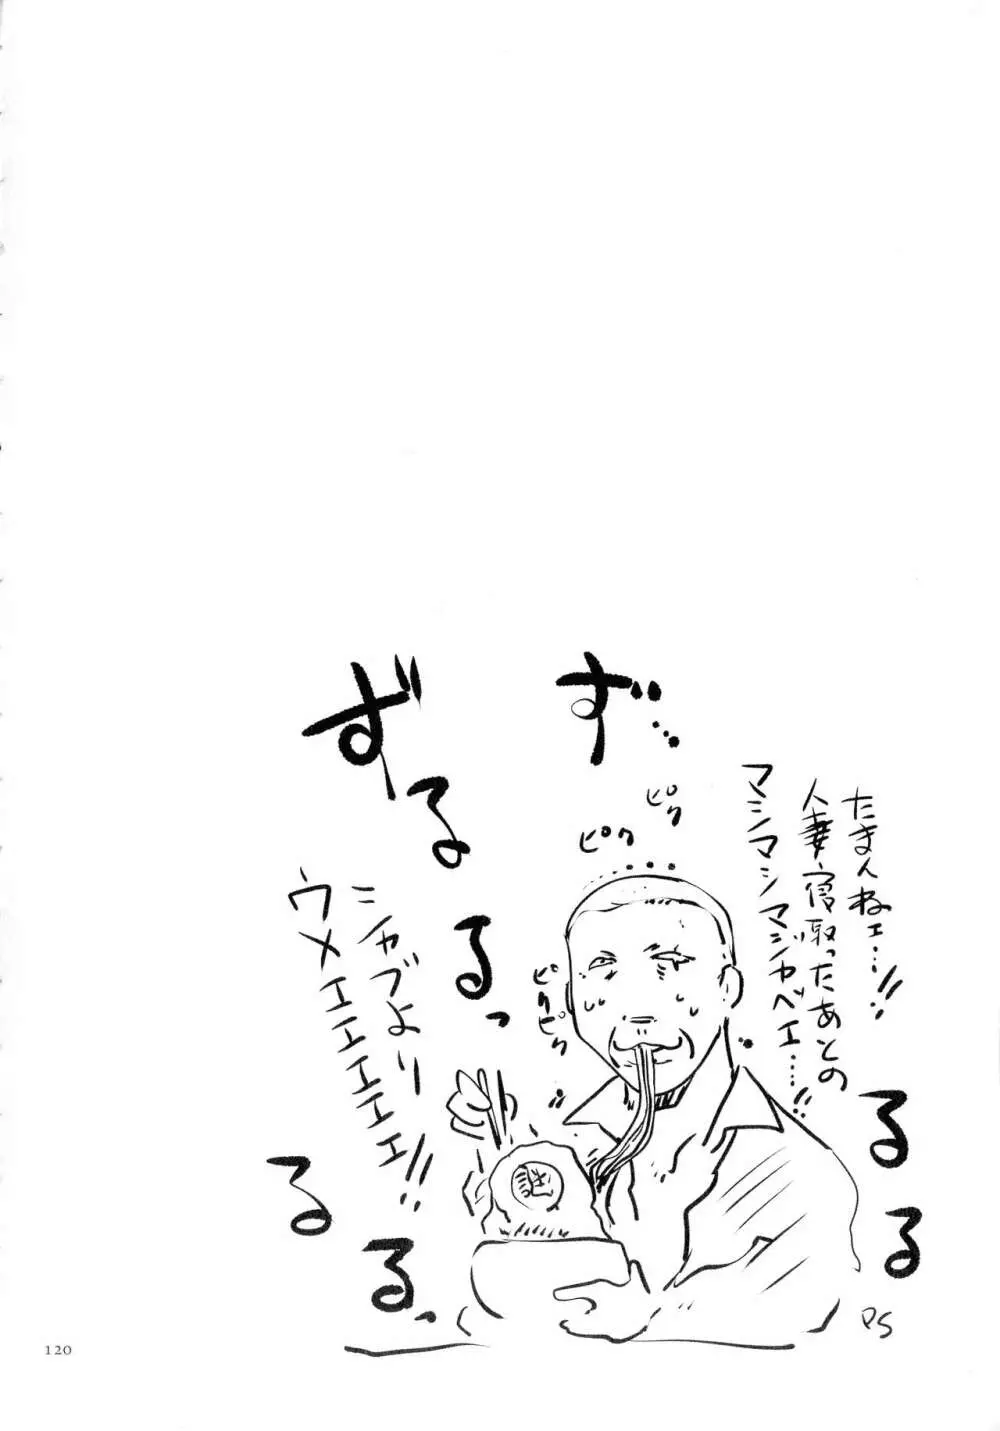 たまんねェ…!!
人妻寝取ったあとの
マシマシマジヤベエ…!!
ピク
ピク
ピク
ピク
ず
るる
ずるるっ
るるっ
ニャブより
ウメエエエエエエ!!
謎
PS
120